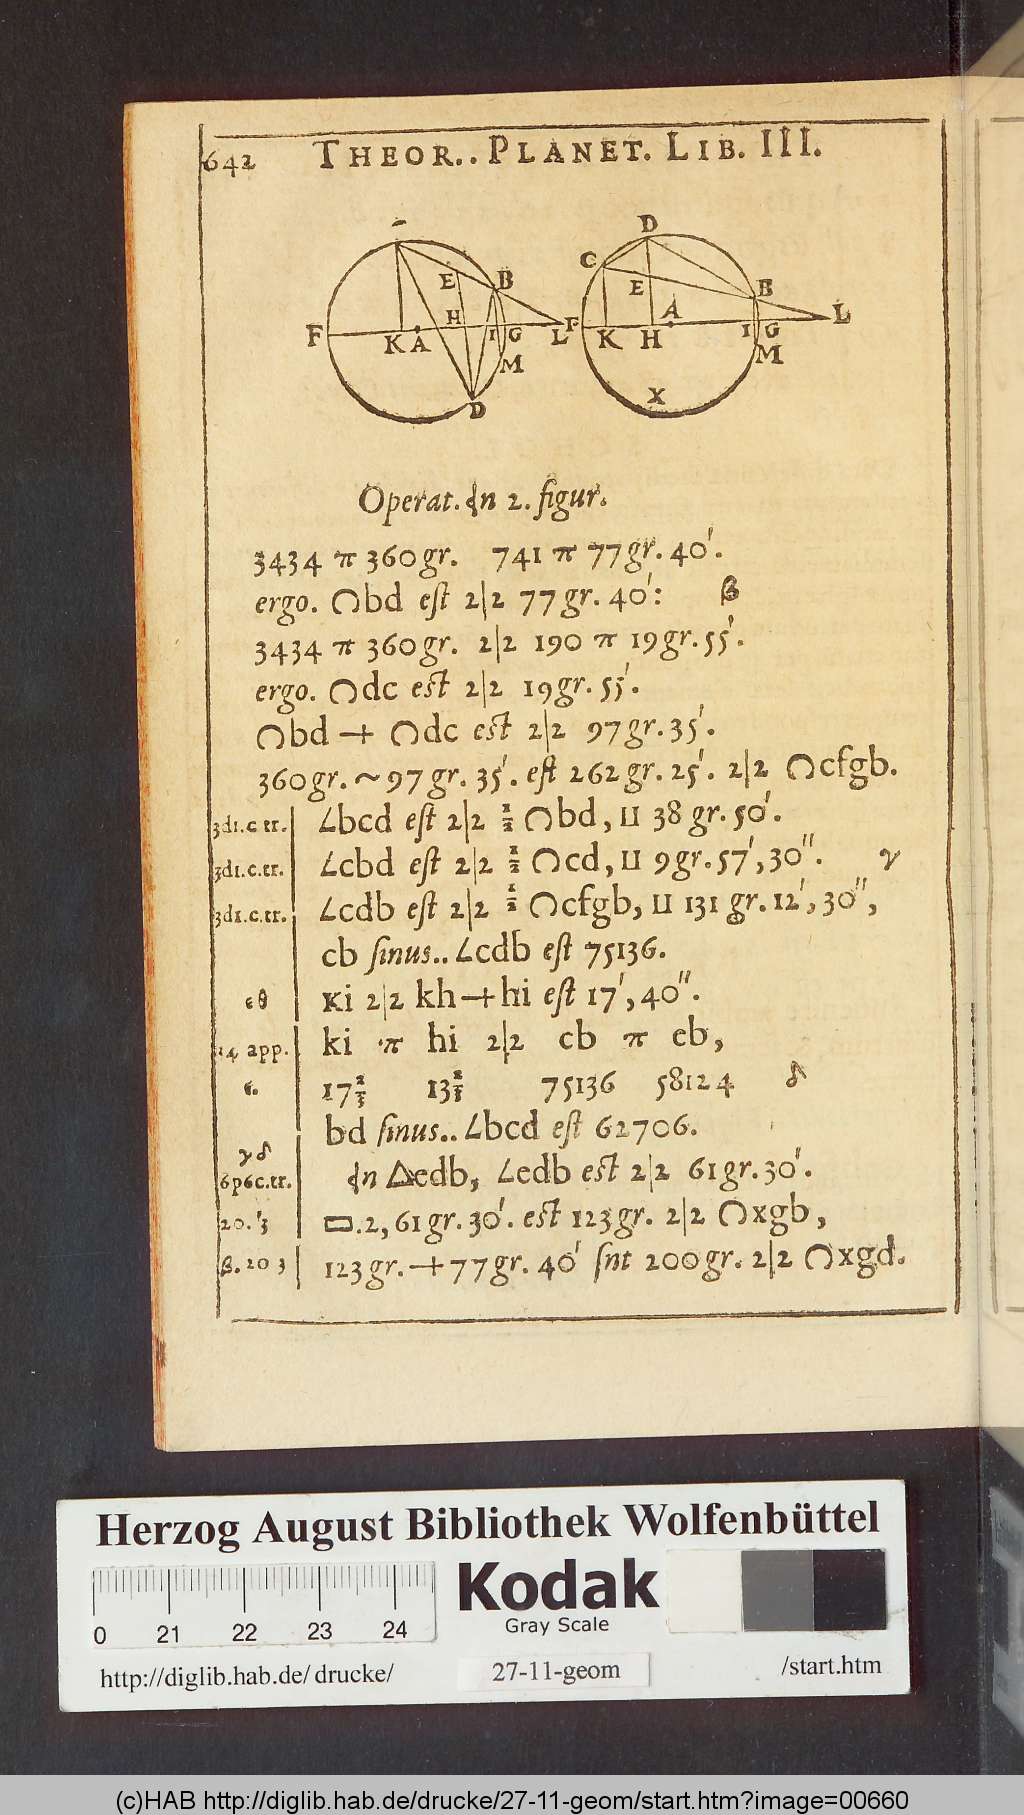 642 THEOR.. PLANET. LIB. III.
D
C
B
E
E
B
F
K A
H
I
G
L
F
K
H
A
I
G
L
M
M
D
X
Operat. In 2. figur.
3434 π 360 gr. 741 π 77 gr. 40'.
ergo. ∩bd est 2|2 77 gr. 40': β
3434 π 360 gr. 2|2 190 π 19 gr. 55'.
ergo. ∩dc est 2|2 19 gr. 55'.
∩bd + ∩dc est 2|2 97 gr. 35'.
360 gr. ~ 97 gr. 35'. est 262 gr. 25'. 2|2 ∩cfgb.
3d1.c.tr. ∠bcd est 2|2 ½ ∩bd, ⊔ 38 gr. 50'.
3d1.c.tr. ∠cbd est 2|2 ½ ∩cd, ⊔ 9 gr. 57', 30''. γ
3d1.c.tr. ∠cdb est 2|2 ½ ∩cfgb, ⊔ 131 gr. 12', 30'',
cb sinus.. ∠cdb est 75136.
εθ ki 2|2 kh + hi est 17', 40''.
14 app. ki π hi 2|2 cb π eb,
ε. 17⅔ 13⅔ 75136 58124 δ
bd sinus.. ∠bcd est 62706.
γδ
6p6c.tr. In △edb, ∠edb est 2|2 61 gr. 30'.
20.'3 ▭.2, 61 gr. 30'. est 123 gr. 2|2 ∩xgb,
β. 20 3 123 gr. + 77 gr. 40' snt 200 gr. 2|2 ∩xgd.
Herzog August Bibliothek Wolfenbüttel
0 21 22 23 24
Kodak
Gray Scale
http://diglib.hab.de/ drucke/ 27-11-geom /start.htm
(c)HAB http://diglib.hab.de/drucke/27-11-geom/start.htm?image=00660